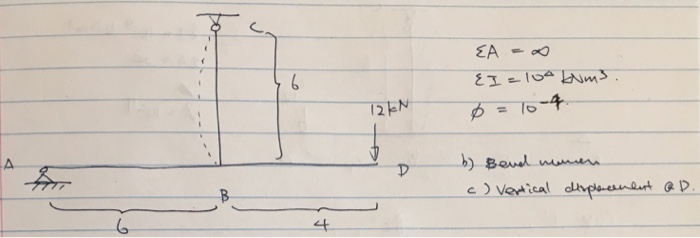 C
6
12kN
A
B
D
6
4
ΣA = ∞
ΣI = 10⁴ kNm³.
ø = 10⁻⁴.
b) Bend momen
c) Vertical displacement @ D.